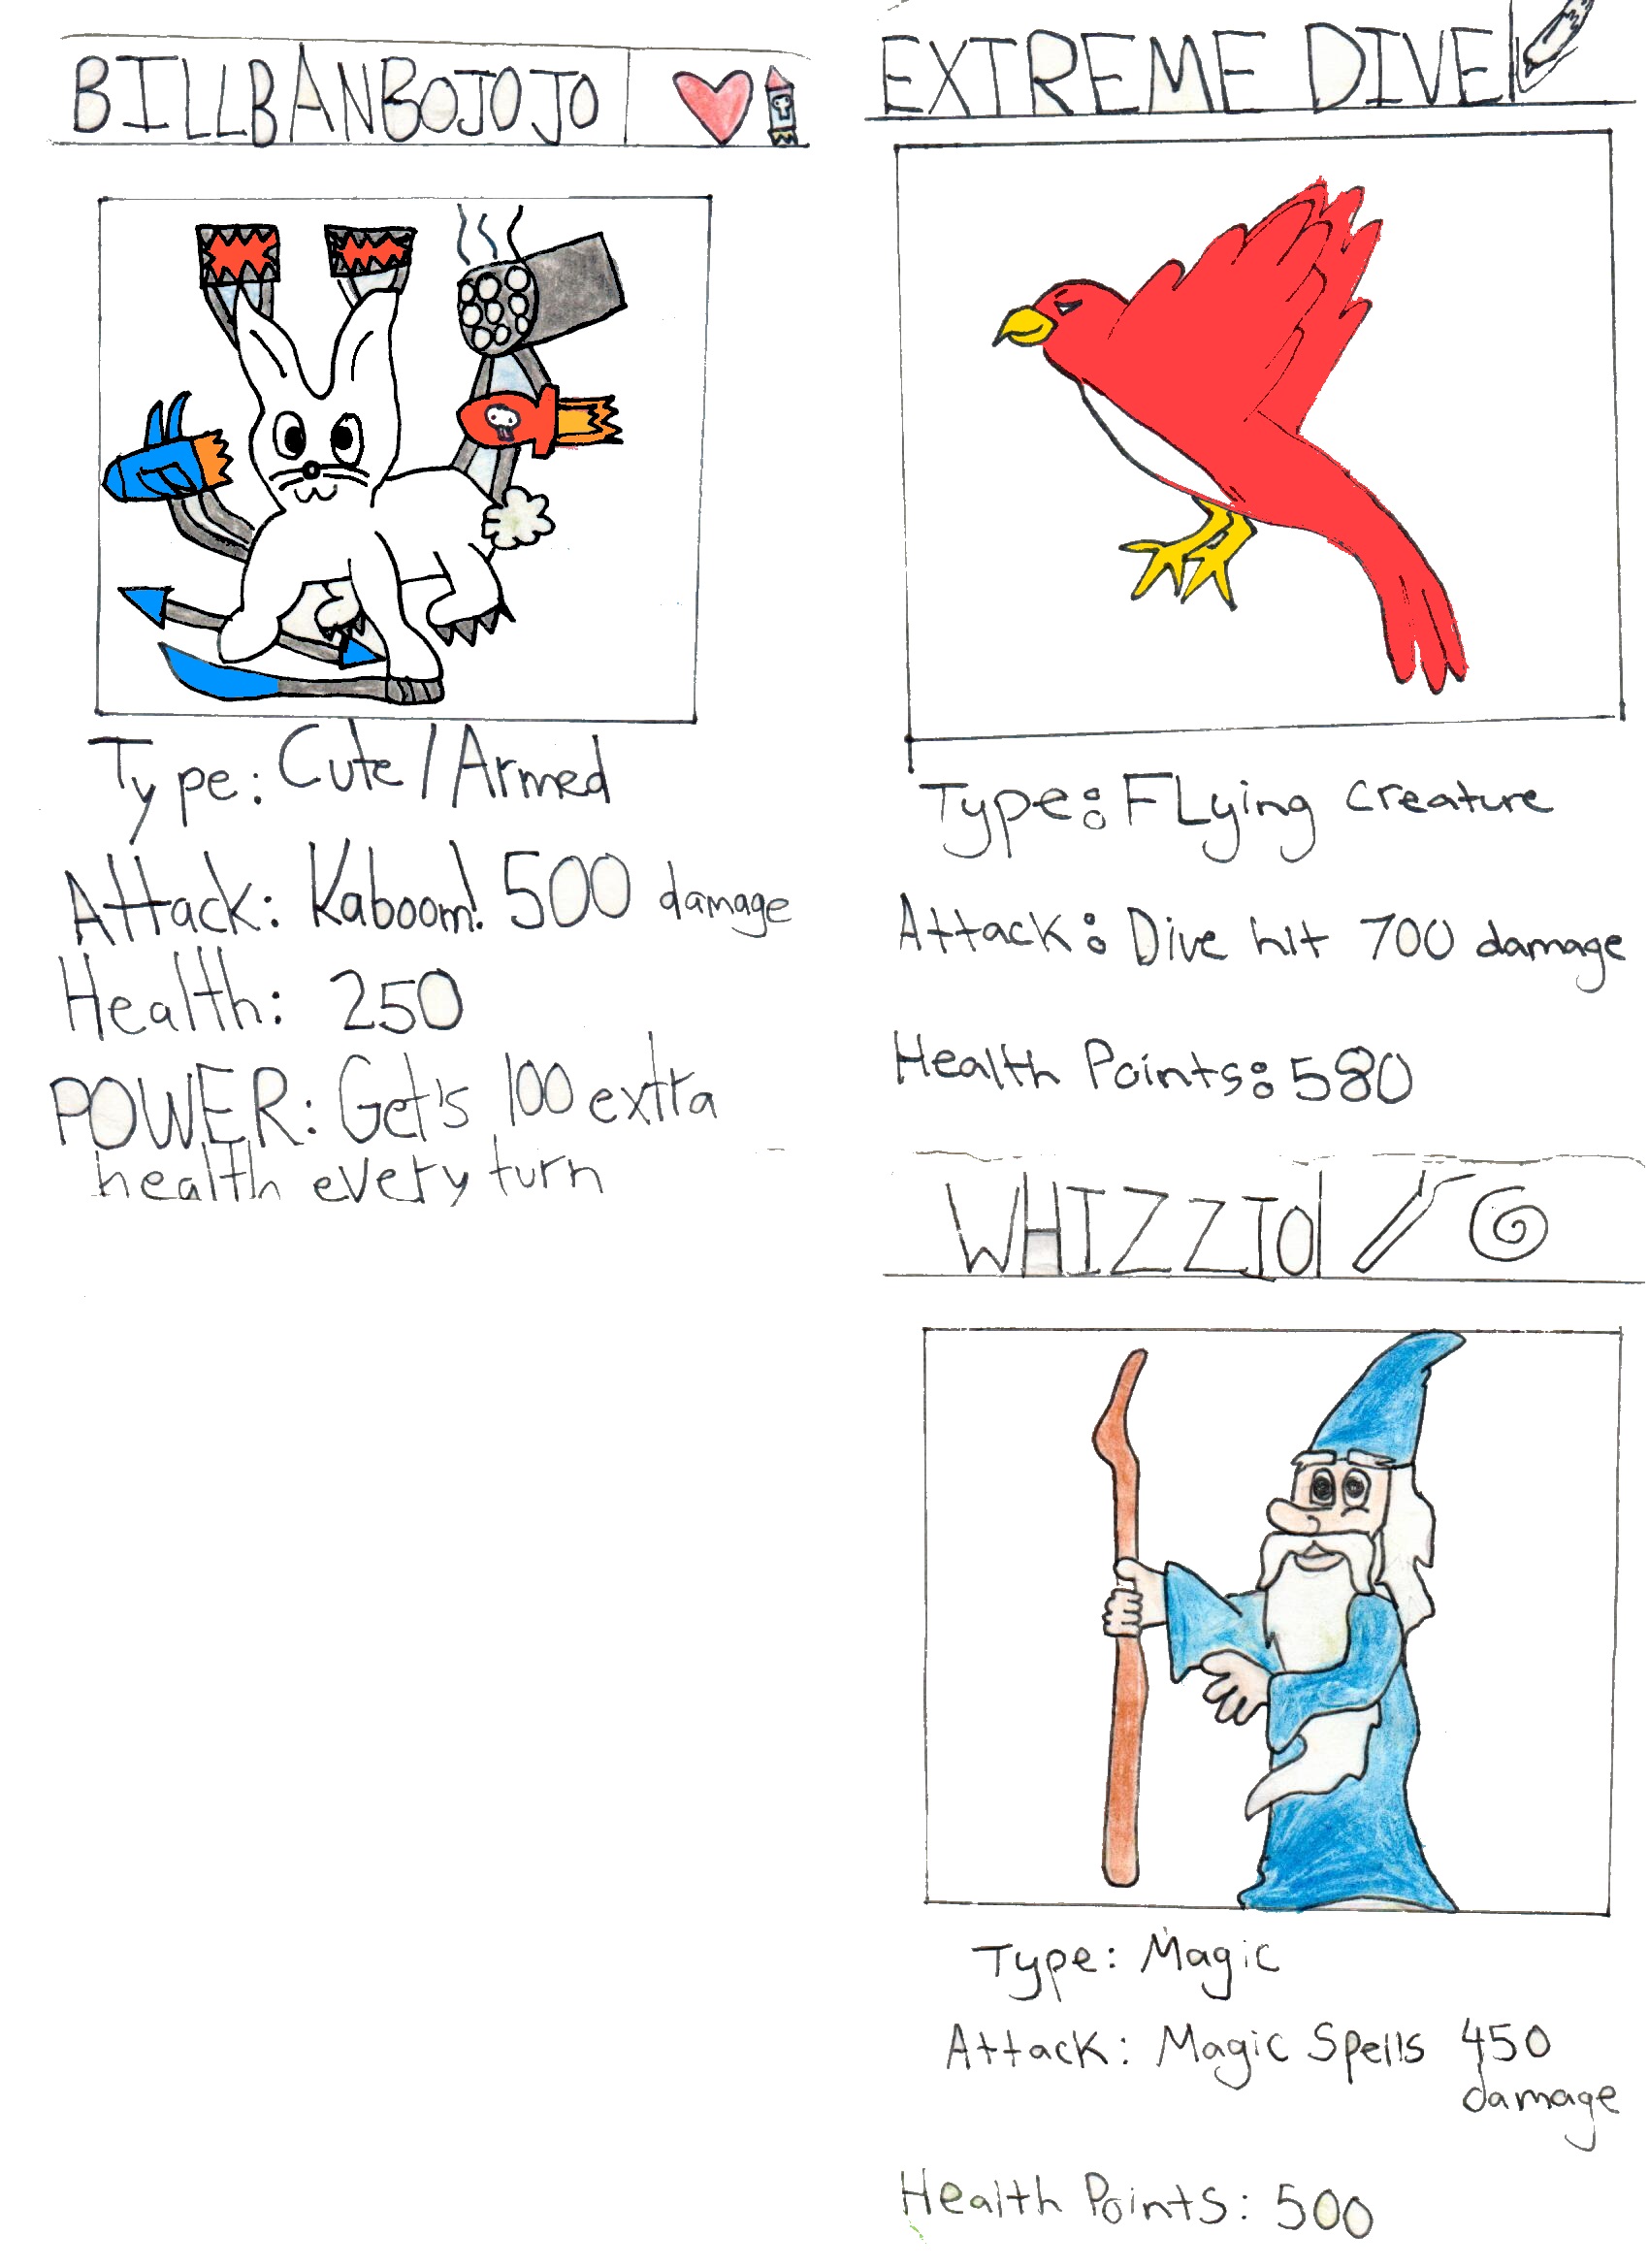 BILLBANBOJOJO
Type: Cute/Armed
Attack: Kaboom! 500 damage
Health: 250
POWER: Get's 100 extra
health every turn
EXTREME DIVE
Type: FLying creature
Attack: Dive hit 700 damage
Health Points: 580
WHIZZIO
Type: Magic
Attack: Magic Spells 450
damage
Health Points: 500